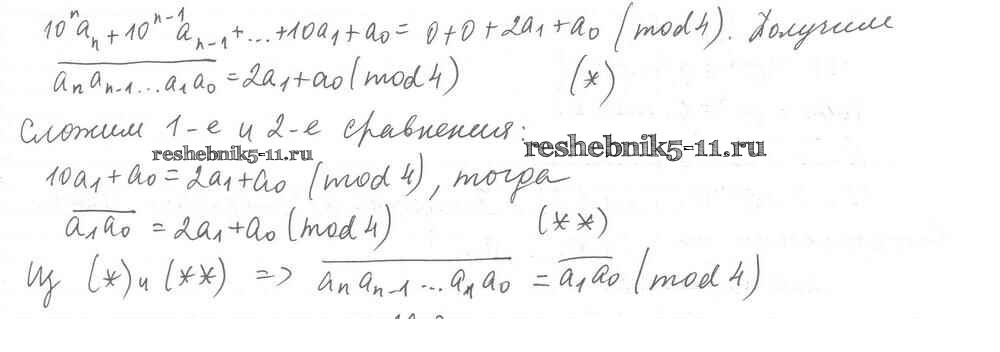 10ⁿaₙ + 10ⁿ⁻¹aₙ₋₁ + ... + 10a₁ + a₀ = 0 + 0 + 2a₁ + a₀ (mod 4). Получим
a̅ₙ̅a̅ₙ̅₋̅₁̅.̅.̅.̅a̅₁̅a̅₀̅ = 2a₁ + a₀ (mod 4) (*)
Сложим 1-е и 2-е сравнения:
reshebnik5-11.ru reshebnik5-11.ru
10a₁ + a₀ = 2a₁ + a₀ (mod 4), тогда
a̅₁̅a̅₀̅ = 2a₁ + a₀ (mod 4) (**)
Из (*) и (**) => a̅ₙ̅a̅ₙ̅₋̅₁̅.̅.̅.̅a̅₁̅a̅₀̅ = a̅₁̅a̅₀̅ (mod 4)